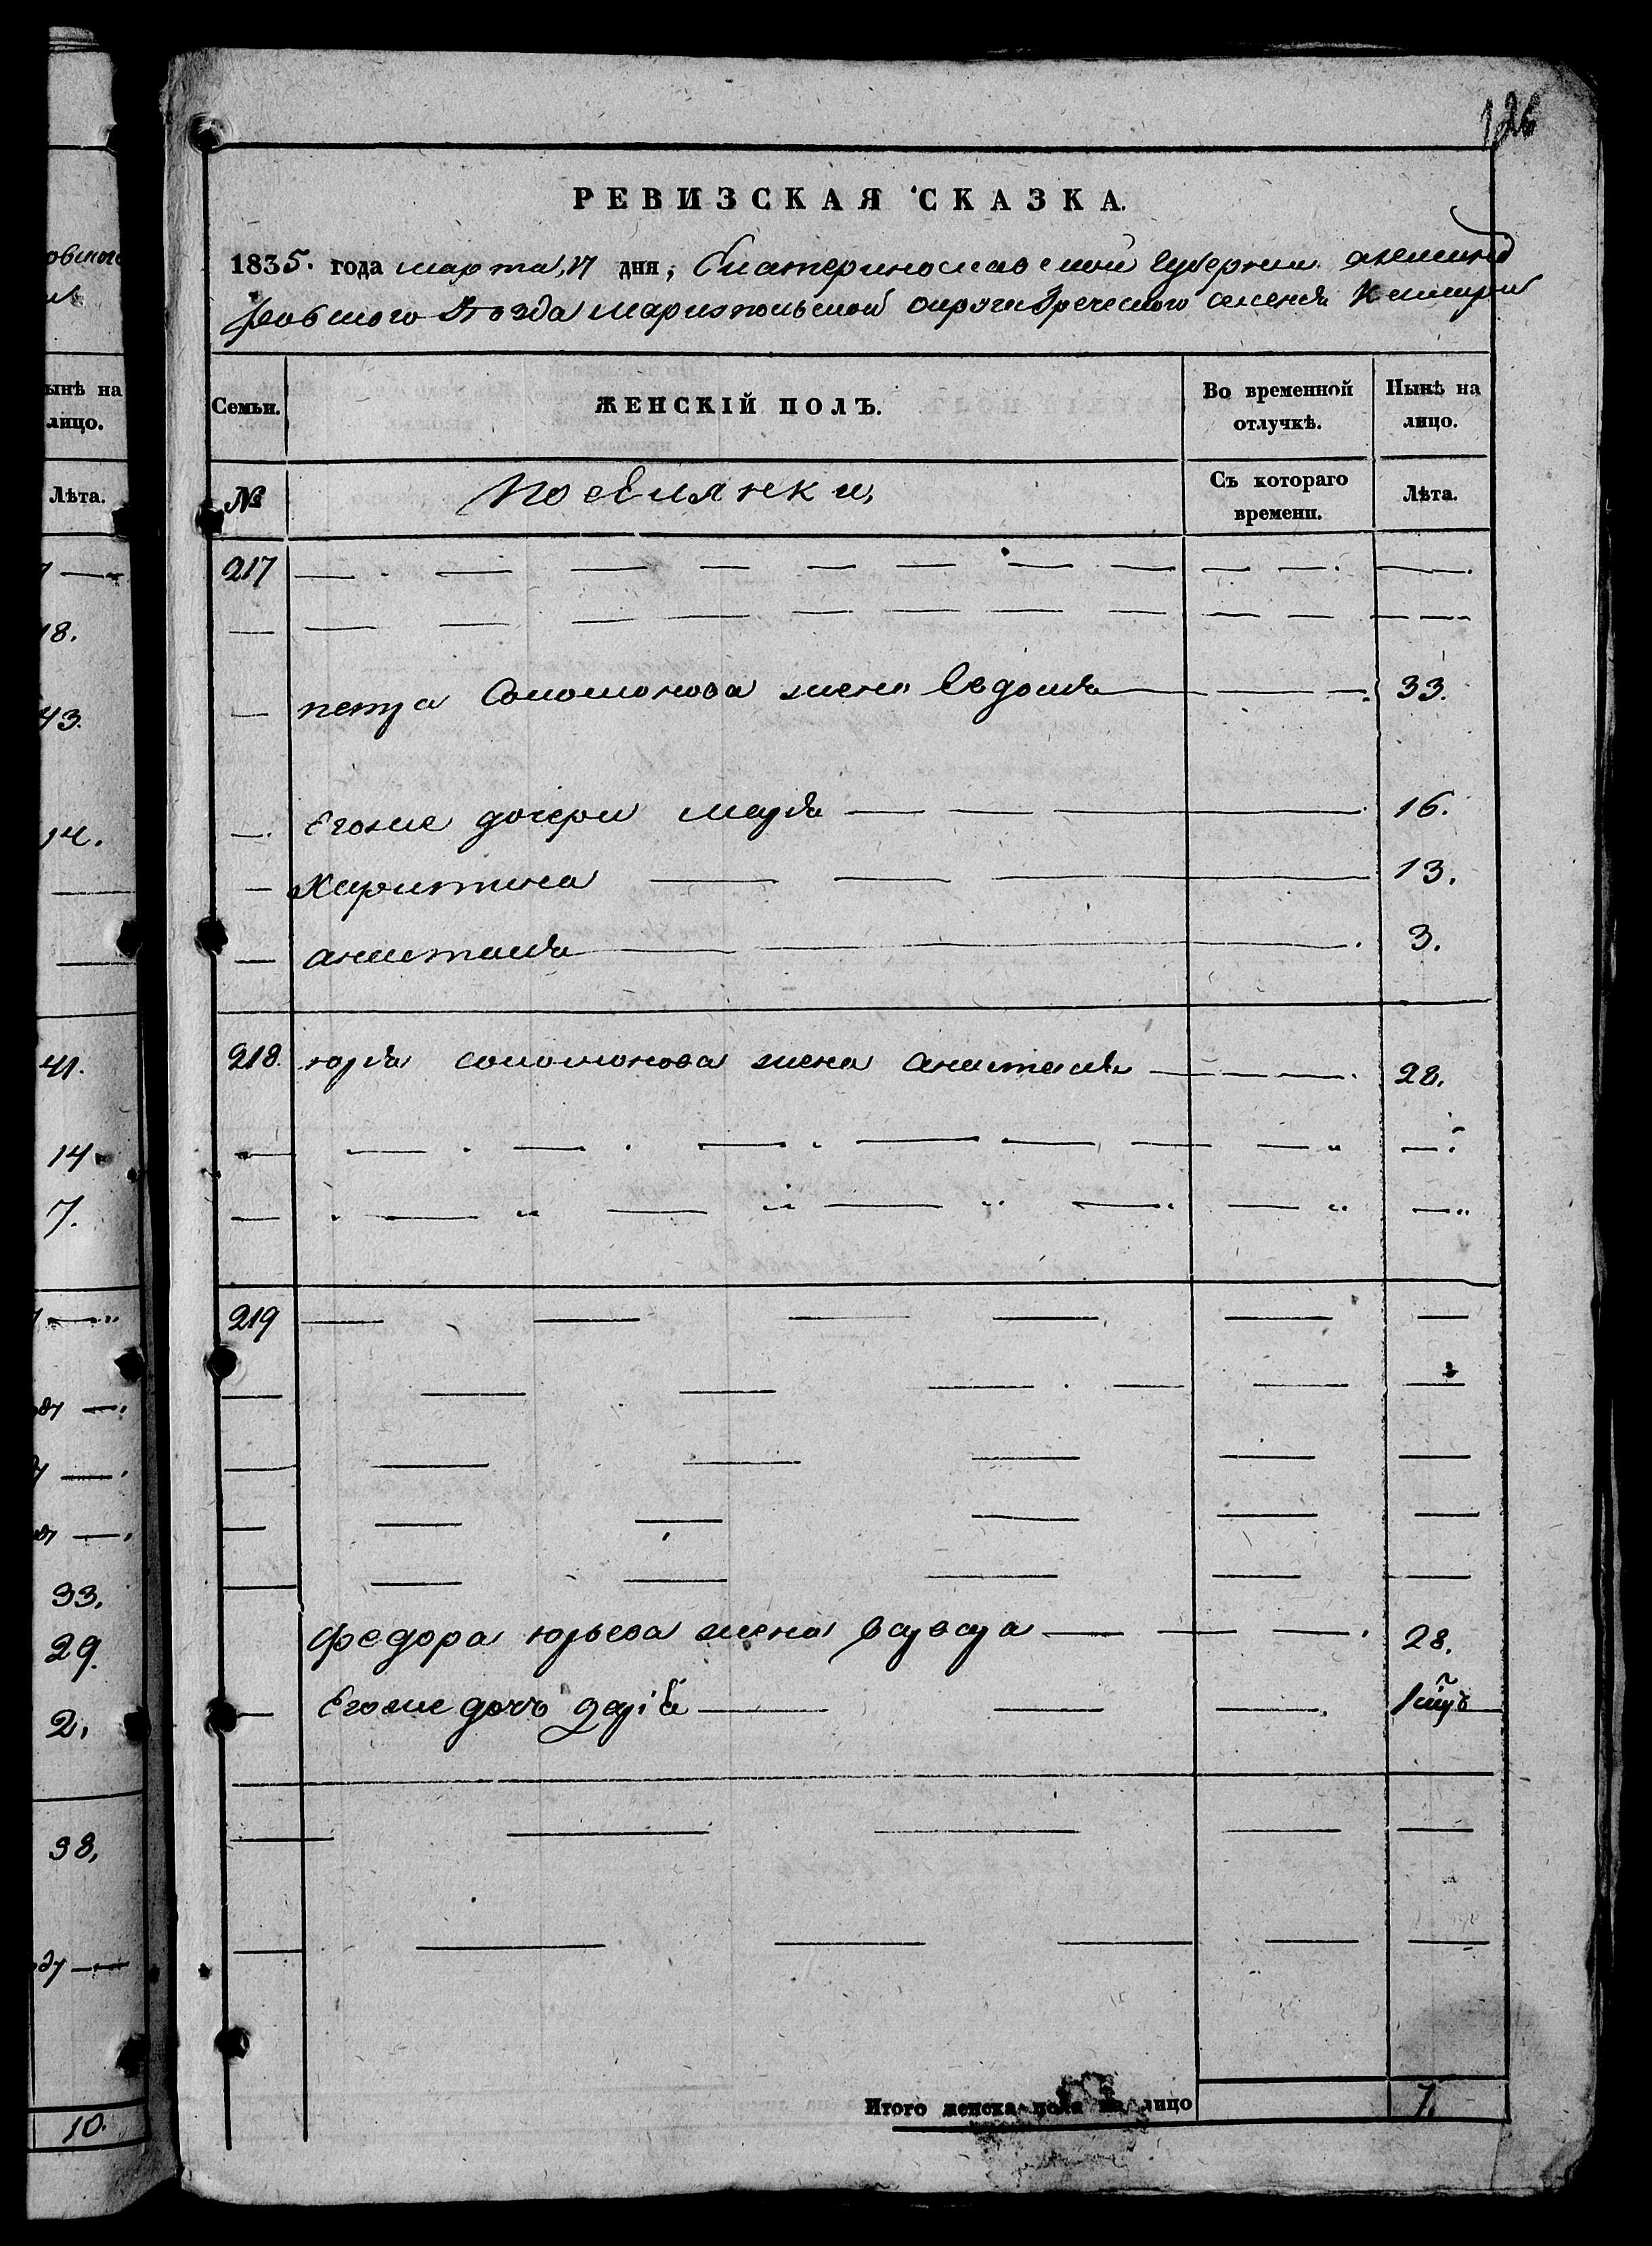 126
РЕВИЗСКАЯ СКАЗКА.
1835. года марта 17 дня, Екатеринославской губернии александ
ровского Уѣзда мариупольской округи Греческого селения Кемицы
Семьи.
ЖЕНСКІЙ ПОЛЪ.
Во временной отлучкѣ.
Нынѣ на лицо.
№
поселянки
Съ котораго времени.
Лѣта.
217
петра Соломонова жена Евдокія 33.
Егоже дочери марія 16.
Харитина 13.
анастасія 3.
218 юрія соломонова жена анастасія 28.
219
федора юрьева жена варвара 28.
Егоже дочь дарія 1
Итого женска пола на лицо 7.
ынѣ на
лицо.
Лѣта.
18.
43.
14.
41.
14
7.
33.
29.
2.
38.
10.